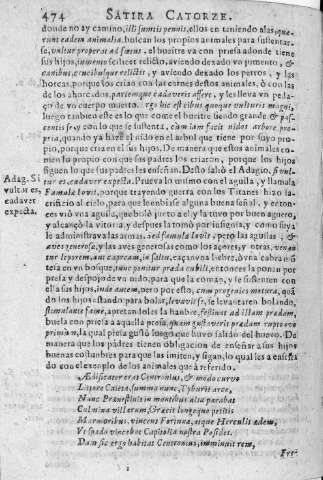 474 SATIRA CATORZE.
donde no ay camino, illi sumtis pennis, ellos en taniendo alas, quæ-
runt eadem animalia, buscan los propios animales para sustentar-
se, vultur properat ad fœtus, el bueitre va con priesa adonde tiene
sus hijos, iumento scilicet relicto, aviendo dexado vo jumento, &
canibus, crucibusque relictis, y aviendo dexado los perros, y las
horcas, porque los crian con las carnes destos animales, ò con las
de los ahorcados, partemque cadaveris affert, y les lleva vn peda-
ço de vo cuerpo muerto. ergo hic est cibus quoque vulturis magni,
luego tambien este es lo que come el bueitre siendo grande, & pas-
centis se, y con lo que se sustenta, cum iam facit nidos arbore pro-
pria, quando ya haze el nido en el arbol que tiene por suyo pro-
pio, porque crian en el sus hijos. De manera que estos animales co-
men lo propio con que sus padres los criaron, porque los hijos
siguen lo que sus padres les enseñan. Desto saliò el Adagio, si vul-
tur es, cadaver expecta. Prueva lo mismo con el aguila, y llamala
Famula Iovis, porque trayendo guerra con los Titanes hizo sa-
crificio al cielo, para que le embiase alguna buena señal, y enton-
ces viò vna aguila, que bolò junto a el, y la tuvo por buen aguero,
y alcançò la vitoria, y despues la tomò por insignia, y como suya
le administrava las armas. sed famula Iovis, pero las aguilas, &
aves generosæ, y las aves generosas como los açores, y otras, venan-
tur leporem, aut capream, in saltu, caçan vna liebre, ò vna cabra mõ-
tela en vn bosque, hinc ponitur præda cubili, entonces la ponen por
presa y despojo de vn nido, para que la coman, y se sustenten con
ella sus hijos, inde autem, pero por esto, cum progenies matura, quã
do los hijos estando para bolar, levavit se, se levantaren bolando,
stimulante fame, apretandoles la hanbre, festinat ad illam prædam,
buela con priesa a aquella presa, quam gustaverit prædam rupto ovo
primùm, la qual presa gustò luego que huvo salido del huevo. De
manera que los padres tienen obligacion de enseñar a sus hijos
buenas costumbres para que las imiten, y sigan, lo qual les a enseña
do con el exemplo de los animales que à referido.
Ædificator erat Centronius, & modo curvo
Littore Caietæ, summa nunc Tyburis arce,
Nunc Prænestinis in montibus alta parabat
Culmina villarum, Græcis longeque petitis
Marmoribus, vincens Fortunæ, atque Herculis ædem,
Vt spado vincebat Capitolia nostra Posides.
Dum sic ergo habitat Centronius, imminuit rem,
Fre-
Adag. Si
vultur es,
cadaver
expecta.